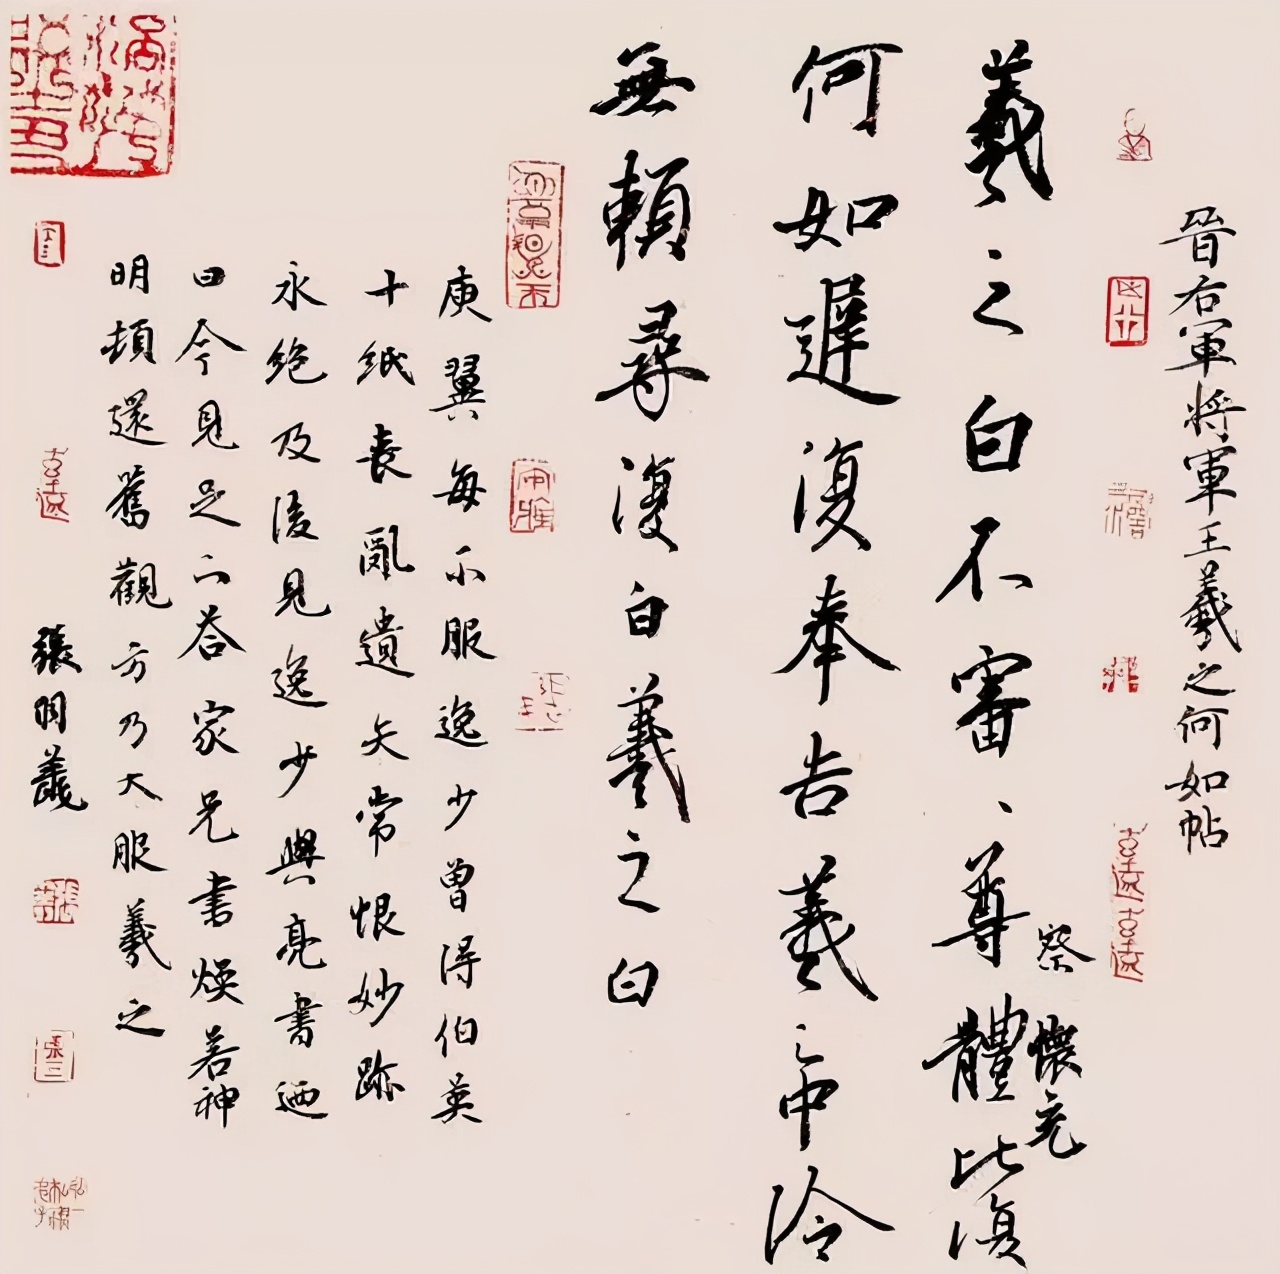 晉右軍将軍王羲之何如帖
羲之白不審、尊體比復
察
懷充
何如遲復奉告羲之中冷
無賴尋復白羲之白
庾翼每不服逸少曾得伯英
十紙喪亂遺失常恨妙跡
永絕及後見逸少與亮書廼
曰今見足下答家兄書煥若神
明頓還舊觀方乃大服羲之
張